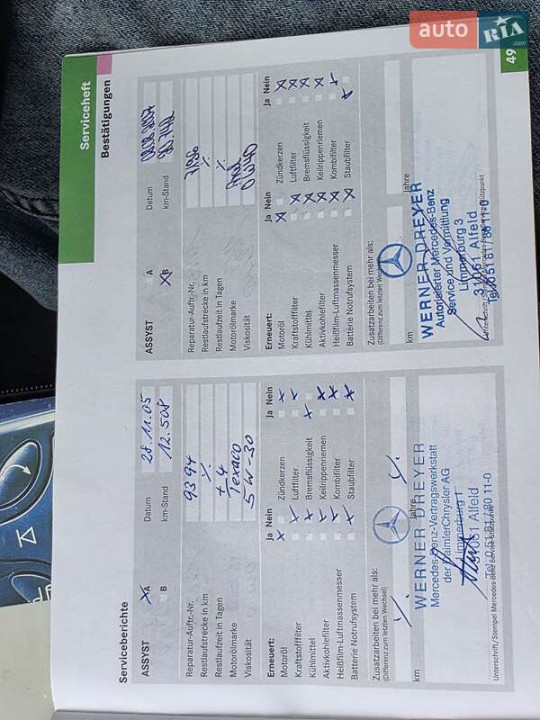 auto RIA.com
49
Serviceheft
Bestätigungen
Serviceberichte
ASSYST
A
B
Datum 28.11.05
km-Stand 12.508
Reparatur-Auftr.-Nr. 9394
Restlaufstrecke in km
Restlaufzeit in Tagen + 4
Motorölmarke Texaco
Viskosität 5W-30
Erneuert: Ja Nein Ja Nein
Motoröl Zündkerzen
Kraftstofffilter Luftfilter
Kühlmittel Bremsflüssigkeit
Aktivkohlefilter Keilrippenriemen
Heißfilm-Luftmassenmesser Kombifilter
Batterie Notrufsystem Staubfilter
Zusatzarbeiten bei mehr als:
(Differenz zum letzten Wechsel)
km Jahre
WERNER DREYER
Mercedes-Benz-Vertragswerkstatt
der DaimlerChrysler AG
Limmerburg 1
31061 Alfeld
Tel. 0 51 81 / 80 11-0
Unterschrift/Stempel Mercedes-Benz Service-Stützpunkt
ASSYST
A
B
Datum
km-Stand
Reparatur-Auftr.-Nr.
Restlaufstrecke in km
Restlaufzeit in Tagen
Motorölmarke
Viskosität 0W40
Erneuert: Ja Nein Ja Nein
Motoröl Zündkerzen
Kraftstofffilter Luftfilter
Kühlmittel Bremsflüssigkeit
Aktivkohlefilter Keilrippenriemen
Heißfilm-Luftmassenmesser Kombifilter
Batterie Notrufsystem Staubfilter
Zusatzarbeiten bei mehr als:
(Differenz zum letzten Wechsel)
km Jahre
WERNER DREYER
Autorisierter Mercedes-Benz
Service und Vermittlung
Limmerburg 3
31061 Alfeld
Tel. 0 51 81 / 80 11-0